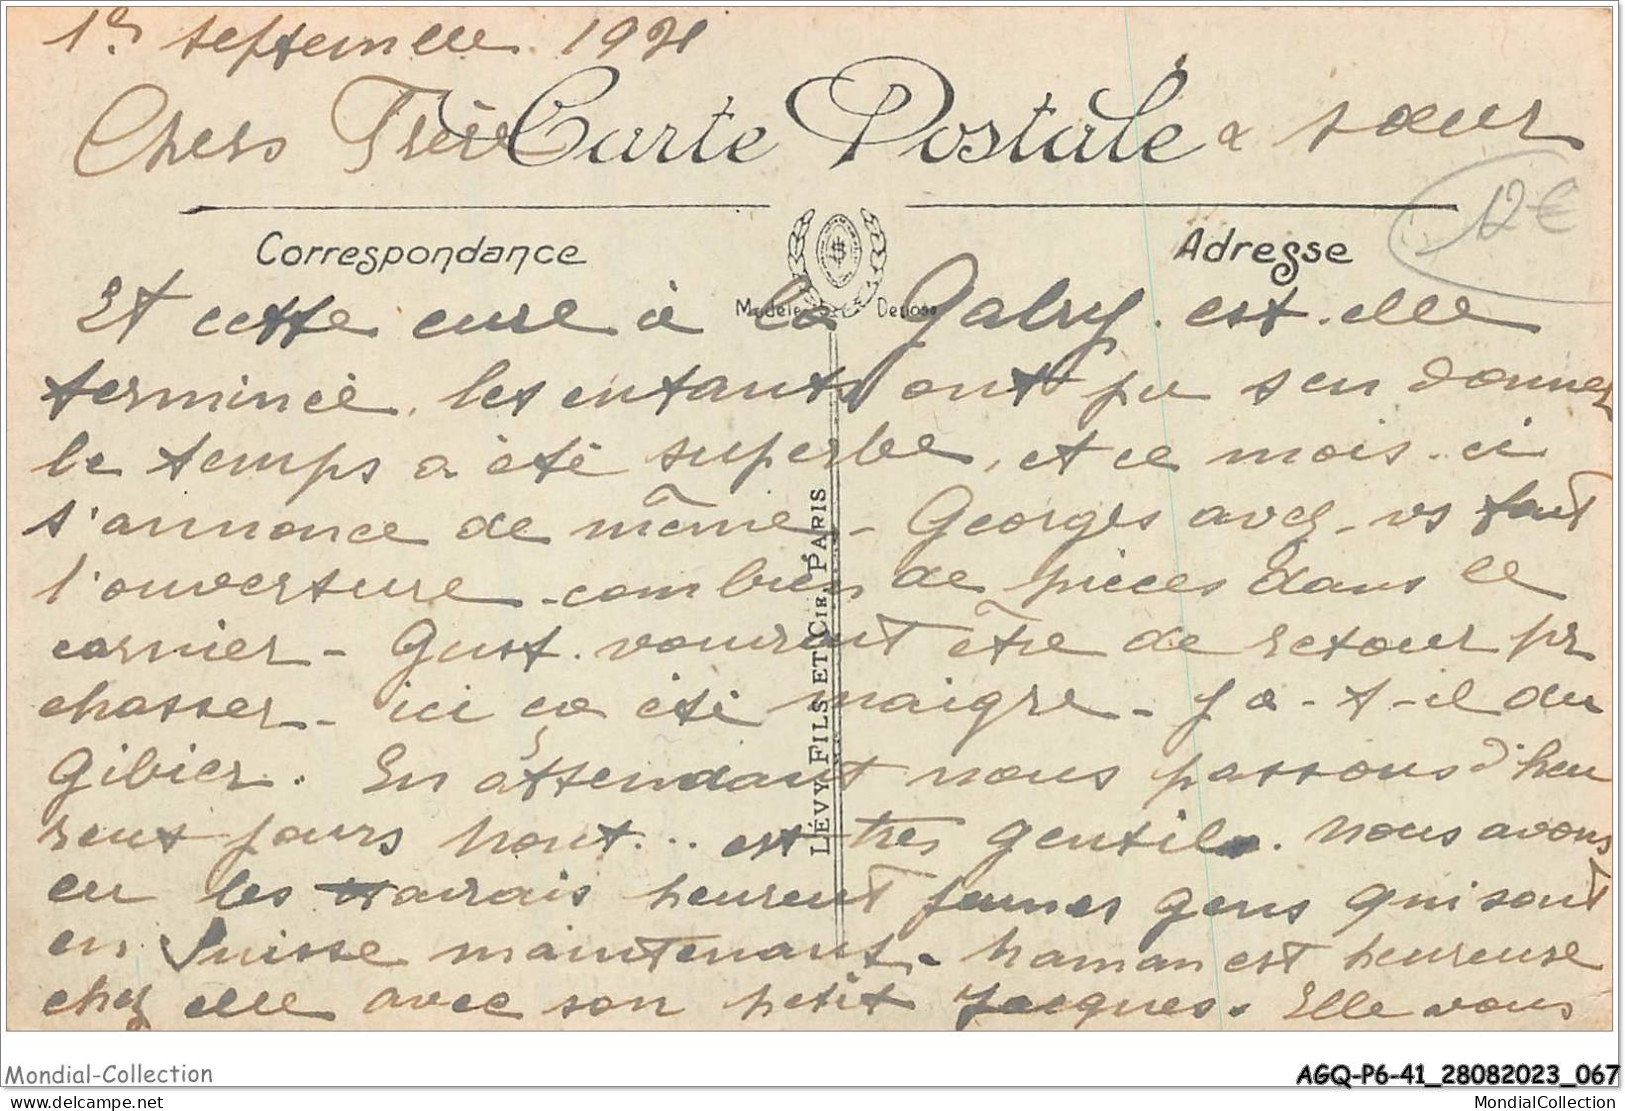 1er septembre 1921
Chers Frère & sœur
Carte Postale
12€
Correspondance
Adresse
Modèle Déposé
Et cette cure à la Galry. est. elle
terminée. les enfants ont pu s'en donner
le temps a été superbe, et ce mois. ci
s'annonce de même - Georges avez-vs fait
l'ouverture - combien de pièces dans le
carnier - Gust. voudrait être de retour pr
chasser - ici ça été maigre - y a-t-il du
Gibier. En attendant nous passons d'heu
reux jours est très gentil. Nous avons
eu les heureux jeunes gens qui sont
en Suisse maintenant - Maman est heureuse
chez elle avec son petit Jacques. Elle vous
LÉVY FILS ET CIE, PARIS
Mondial-Collection
AGQ-P6-41_28082023_067
www.delcampe.net
MondialCollection